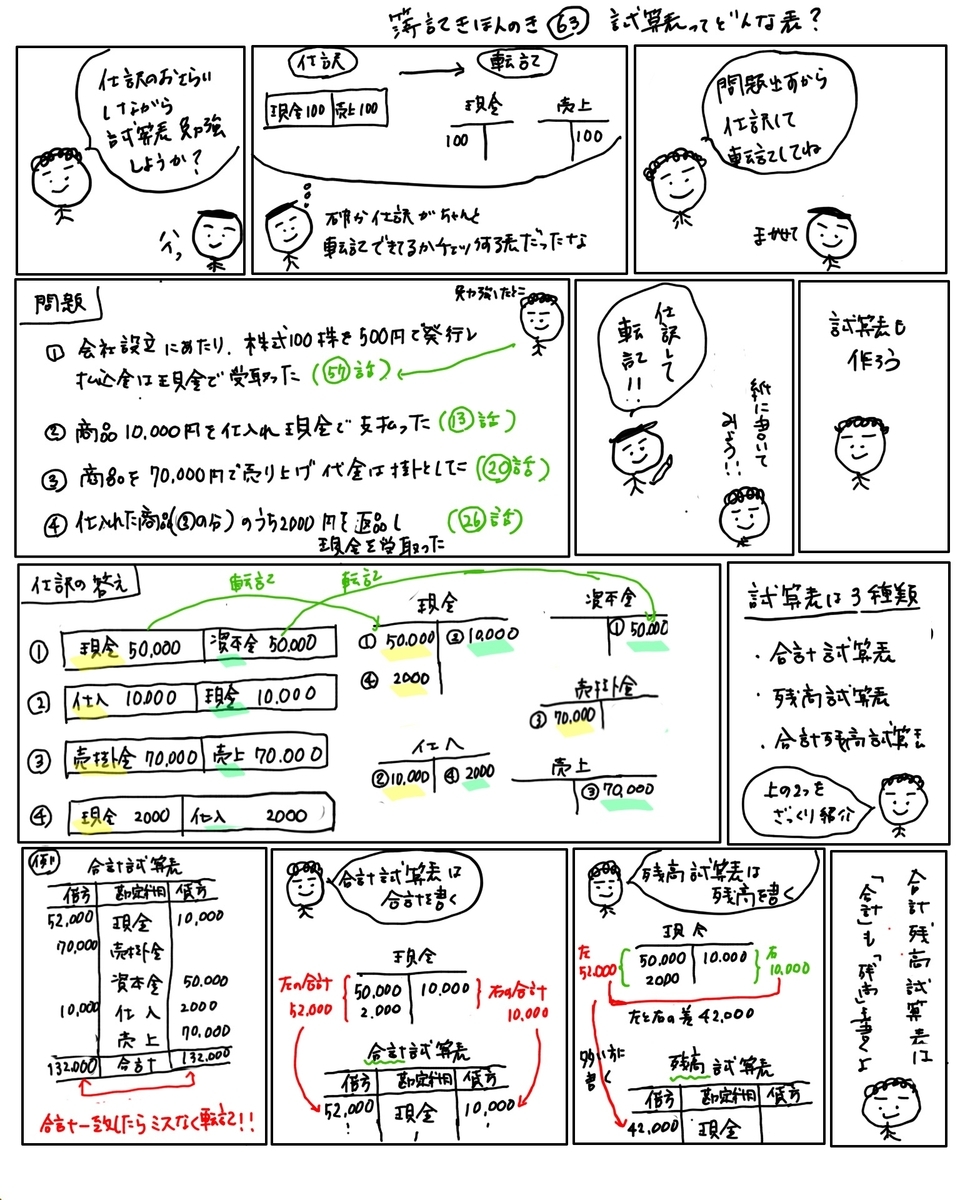 簿記きほんのき 63 試算表ってどんな表?
仕訳のおさらい
しながら
試算表 勉強
しようか?
ハイッ
仕訳 → 転記
現金100 売上100
現金 売上
100 100
確か仕訳がちゃんと
転記できてるかチェックする表だったな
問題出すから
仕訳して
転記してね
まかせて
問題
勉強したとこ
① 会社設立にあたり、株式100株を500円で発行し
払込金は現金で受取った (57話)
② 商品10,000円を仕入れ現金で支払った (13話)
③ 商品を70,000円で売り上げ代金は掛けとした (20話)
④ 仕入れた商品(②の分)のうち2000円を返品し (26話)
現金を受取った
仕訳して
転記!!
紙に書いて
みよう!!
試算表も
作ろう
仕訳の答え
転記 転記
① 現金 50,000 資本金 50,000
② 仕入 10,000 現金 10,000
③ 売掛金 70,000 売上 70.000
④ 現金 2000 仕入 2000
現金
① 50,000 ② 10,000
④ 2000
資本金
① 50.000
売掛金
③ 70,000
仕入
② 10,000 ④ 2000
売上
③ 70,000
試算表は3種類
・合計試算表
・残高試算表
・合計残高試算表
上の2つを
ざっくり紹介
例
合計試算表
借方 勘定科目 貸方
52,000 現金 10,000
70,000 売掛金
資本金 50.000
10,000 仕入 2000
売上 70.000
132.000 合計 132.000
合計一致したらミスなく転記!!
合計試算表は
合計を書く
現金
左の合計 50,000 10,000 右の合計
52.000 2.000 10.000
合計試算表
借方 勘定科目 貸方
52,000 現金 10,000
残高試算表は
残高を書く
現金
左 50.000 10.000 右
52.000 2000 10,000
左と右の差 42,000
多い方に
書く
残高試算表
借方 勘定科目 貸方
42,000 現金
合計残高試算表は
「合計」も「残高」も書くよ